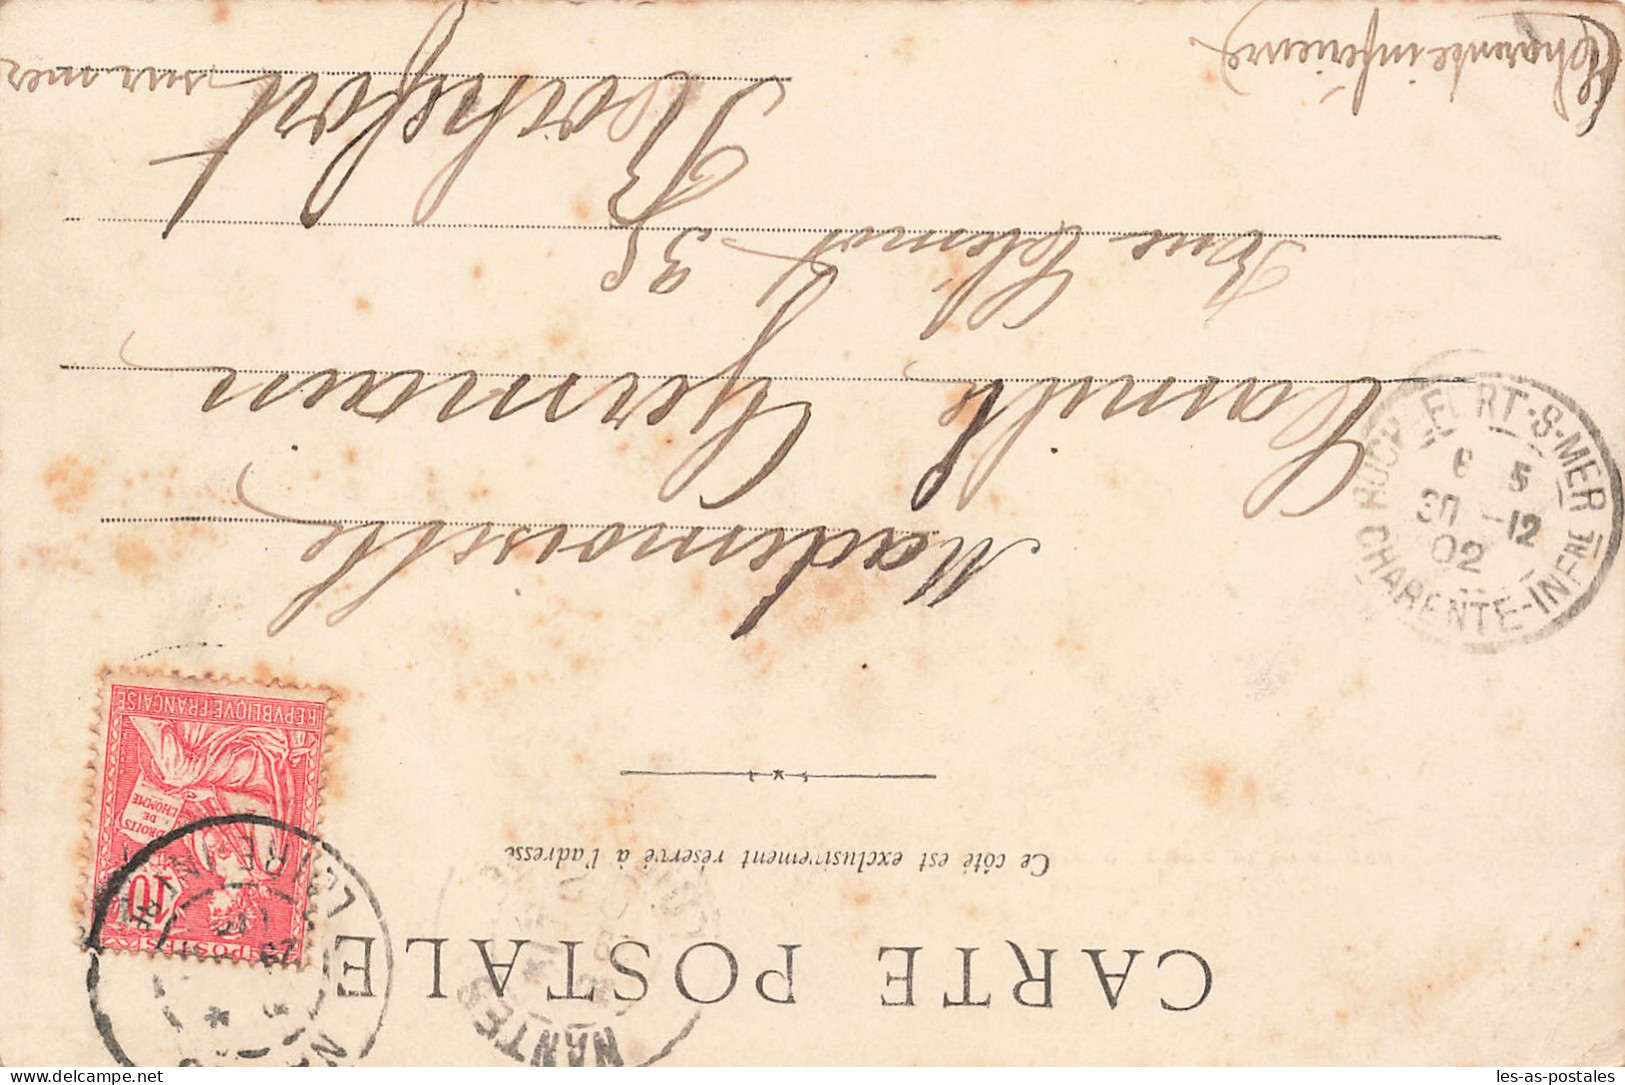 CARTE POSTALE
Ce côté est exclusivement réservé à l'adresse
POSTES
10
DROITS
DE
L'HOMME
REPVBLIQVE FRANÇAISE
LOIRE-INFRE
NANTES
Mademoiselle
Camille Germain
Rue Clémot 35
Rochefort sur mer
Charente inférieure
ROCHEFORT-S-MER
6 5
30 -12
02
CHARENTE-INFRE
les-as-postales